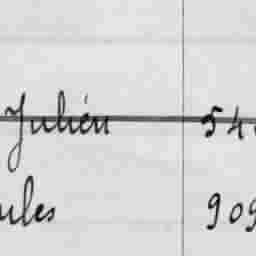 Julien 54
ules 909